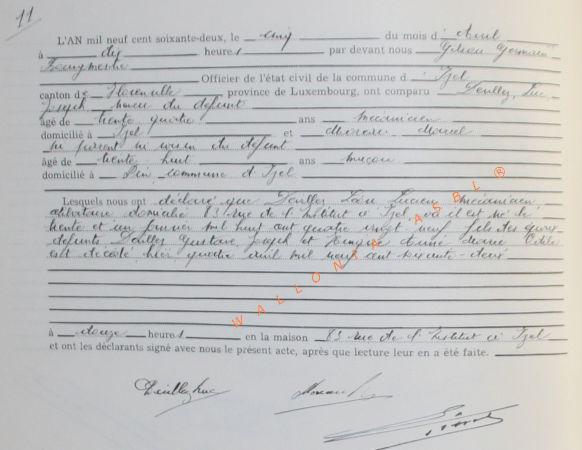 11
L'AN mil neuf cent soixante-deux, le cinq du mois d'Avril
à dix heures par devant nous Germain
Officier de l'état civil de la commune d'Izel
canton de Florenville province de Luxembourg, ont comparu Deulley, Luc,
Joseph neveu du défunt
âgé de trente quatre ans mécanicien
domicilié à Izel et Marcel
ni parent ni voisin du défunt
âgé de trente huit ans maçon
domicilié à Pin, commune d'Izel
Lesquels nous ont déclaré que Lucien mécanicien
célibataire domicilié 83 rue de l'Institut à Izel, où il est né le
trente et un janvier mil huit cent quatre vingt neuf fils des époux
défunts Gustave, Joseph et Marie
est décédé hier quatre avril mil neuf cent soixante-deux
à douze heures en la maison 83 rue de l'Institut à Izel
et ont les déclarants signé avec nous le présent acte, après que lecture leur en a été faite.
WALLONIA ASBL ®